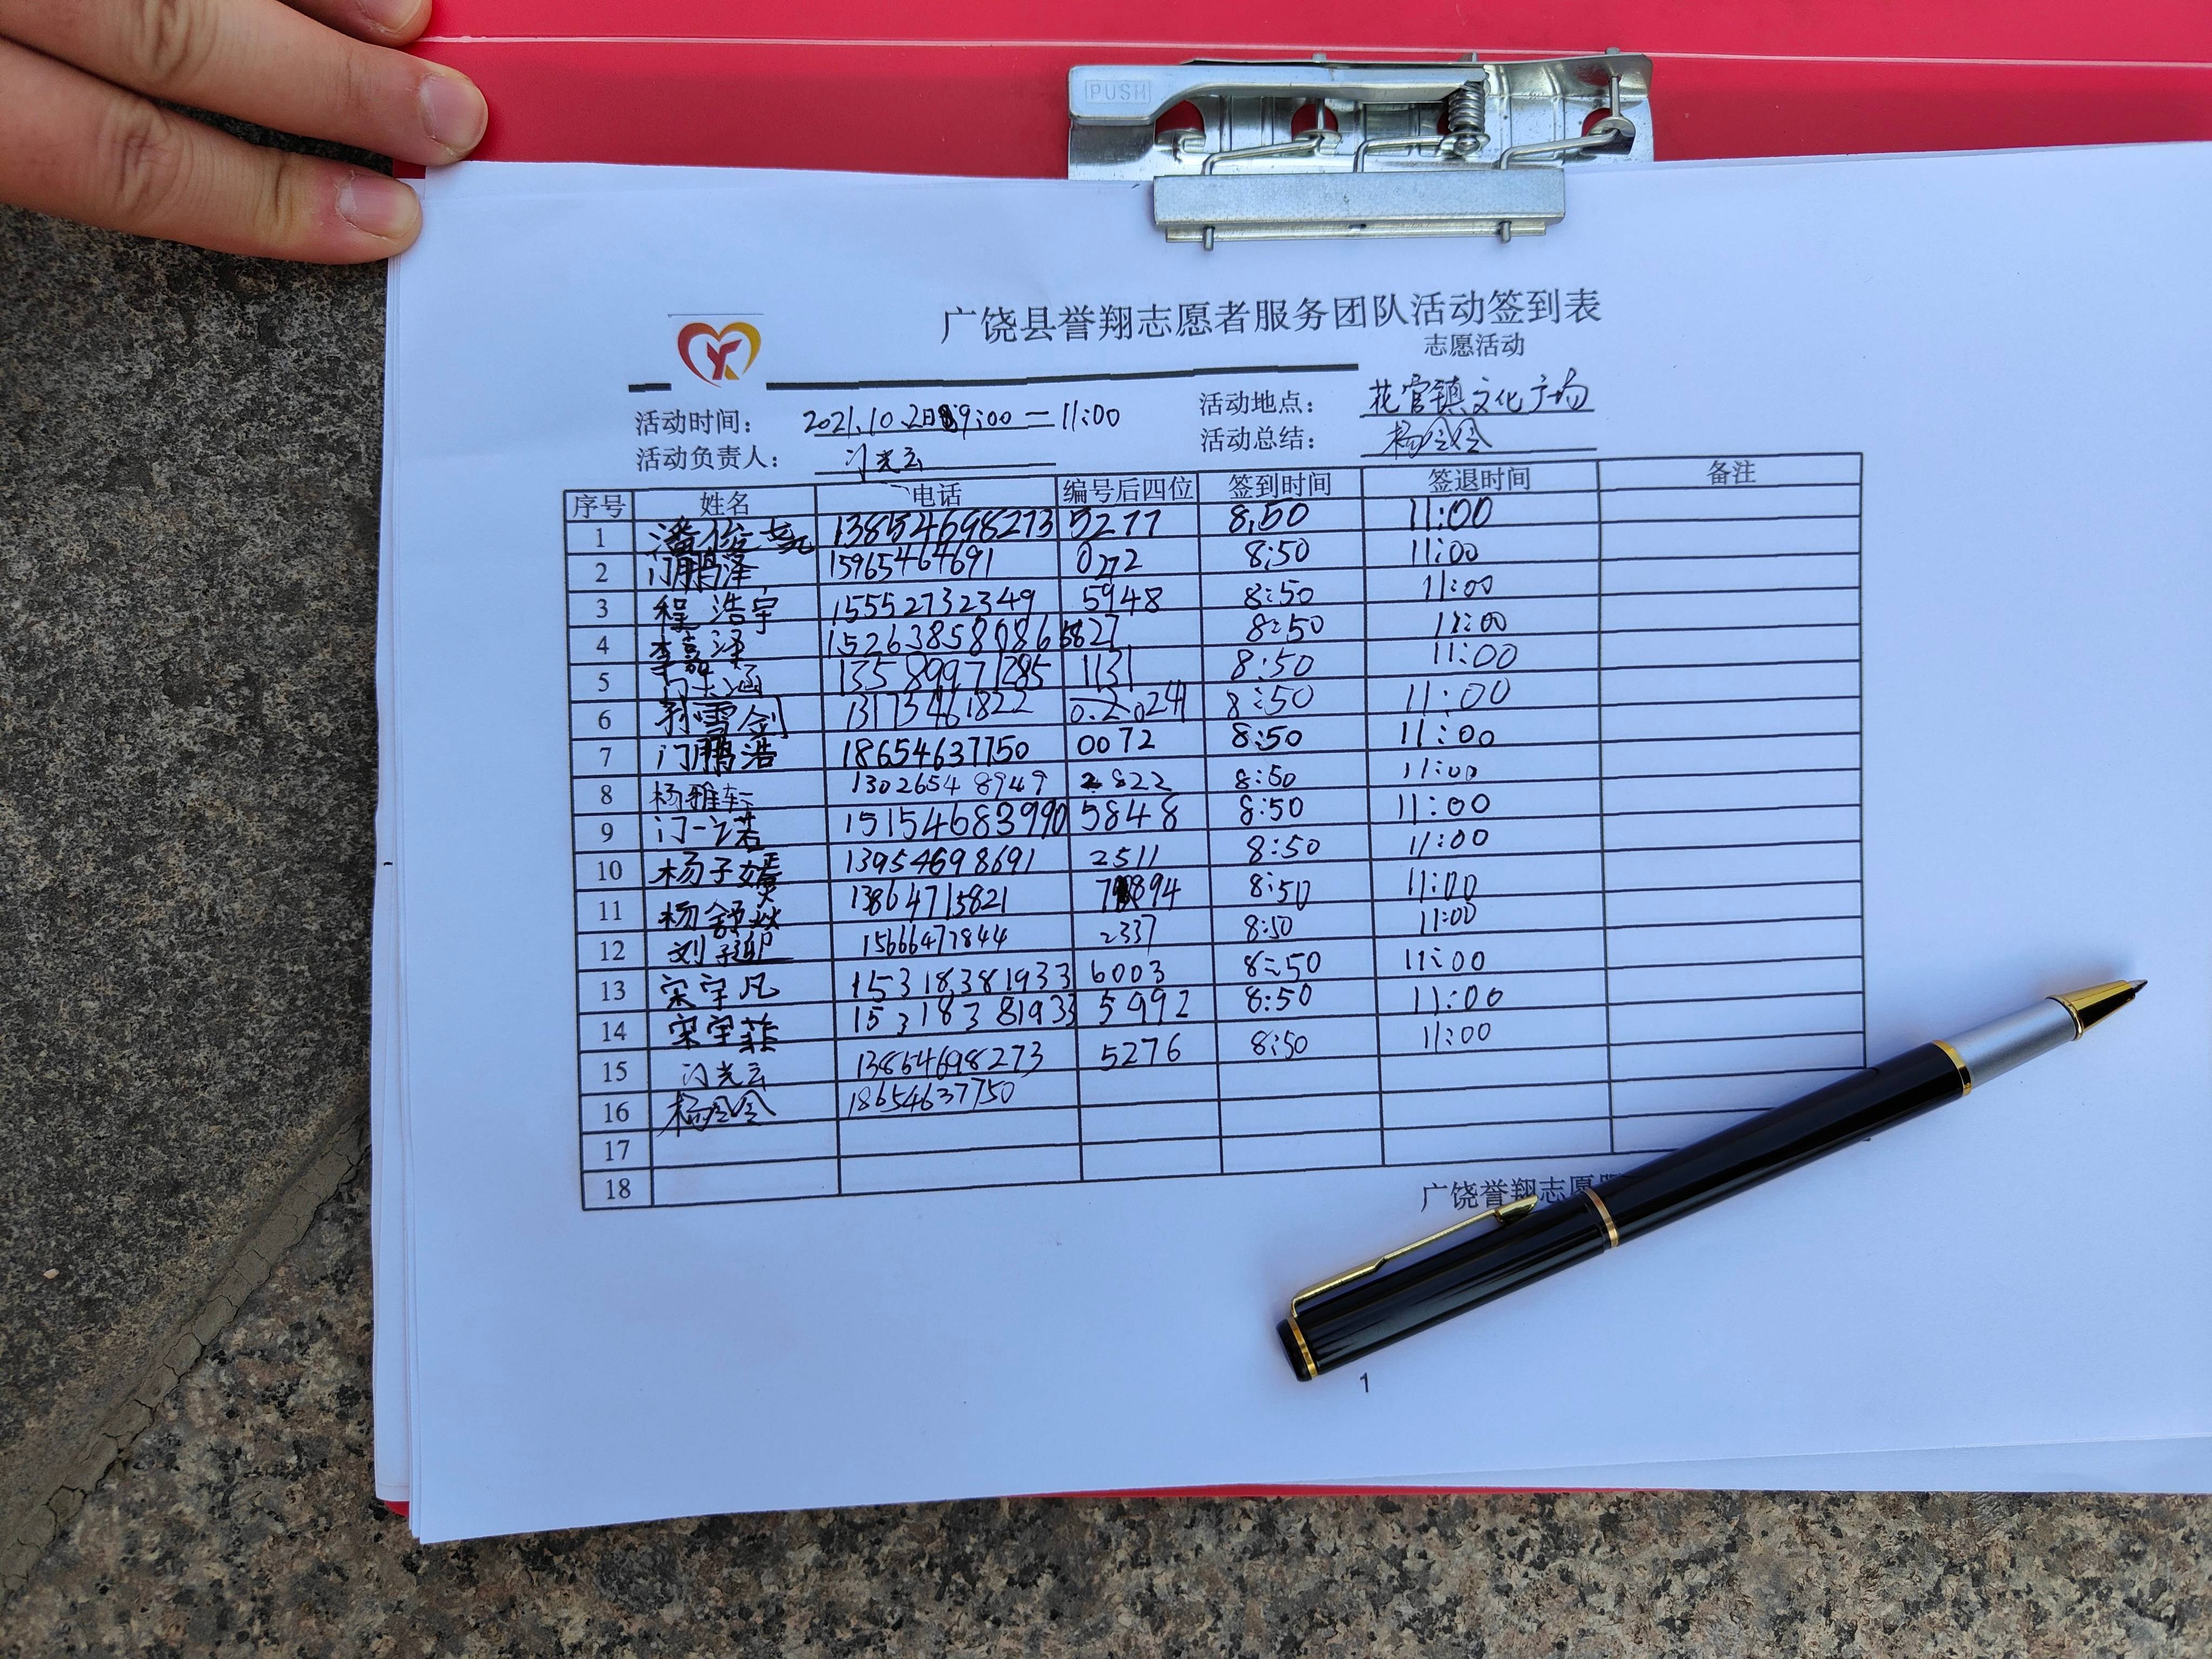 PUSH
广饶县誉翔志愿者服务团队活动签到表
志愿活动
活动时间: 2021.10.2日9:00—11:00 活动地点: 花官镇文化广场
活动负责人: 闪光云 活动总结: 杨令令
序号 姓名 电话 编号后四位 签到时间 签退时间 备注
1 潘俊 13854698273 5277 8:50 11:00
2 门鹏泽 15965464691 0272 8:50 11:00
3 程浩宇 15552732349 5948 8:50 11:00
4 李嘉泽 15263858086 5827 8:50 11:00
5 13589971285 1131 8:50 11:00
6 雪剑 13173461822 0.2.024 8:50 11:00
7 门鹏浩 18654637750 0072 8:50 11:00
8 杨雅 13026548949 2822 8:50 11:00
9 门一诺 15154683990 5848 8:50 11:00
10 杨子媛 13954698691 2511 8:50 11:00
11 杨舒焱 13864715821 7894 8:50 11:00
12 刘 15666477844 2337 8:50 11:00
13 宋宇凡 15318381933 6003 8:50 11:00
14 宋宇菲 15318381933 5992 8:50 11:00
15 闪光云 13864698273 5276 8:50 11:00
16 杨令令 18654637750
17
18
广饶誉翔志愿
1